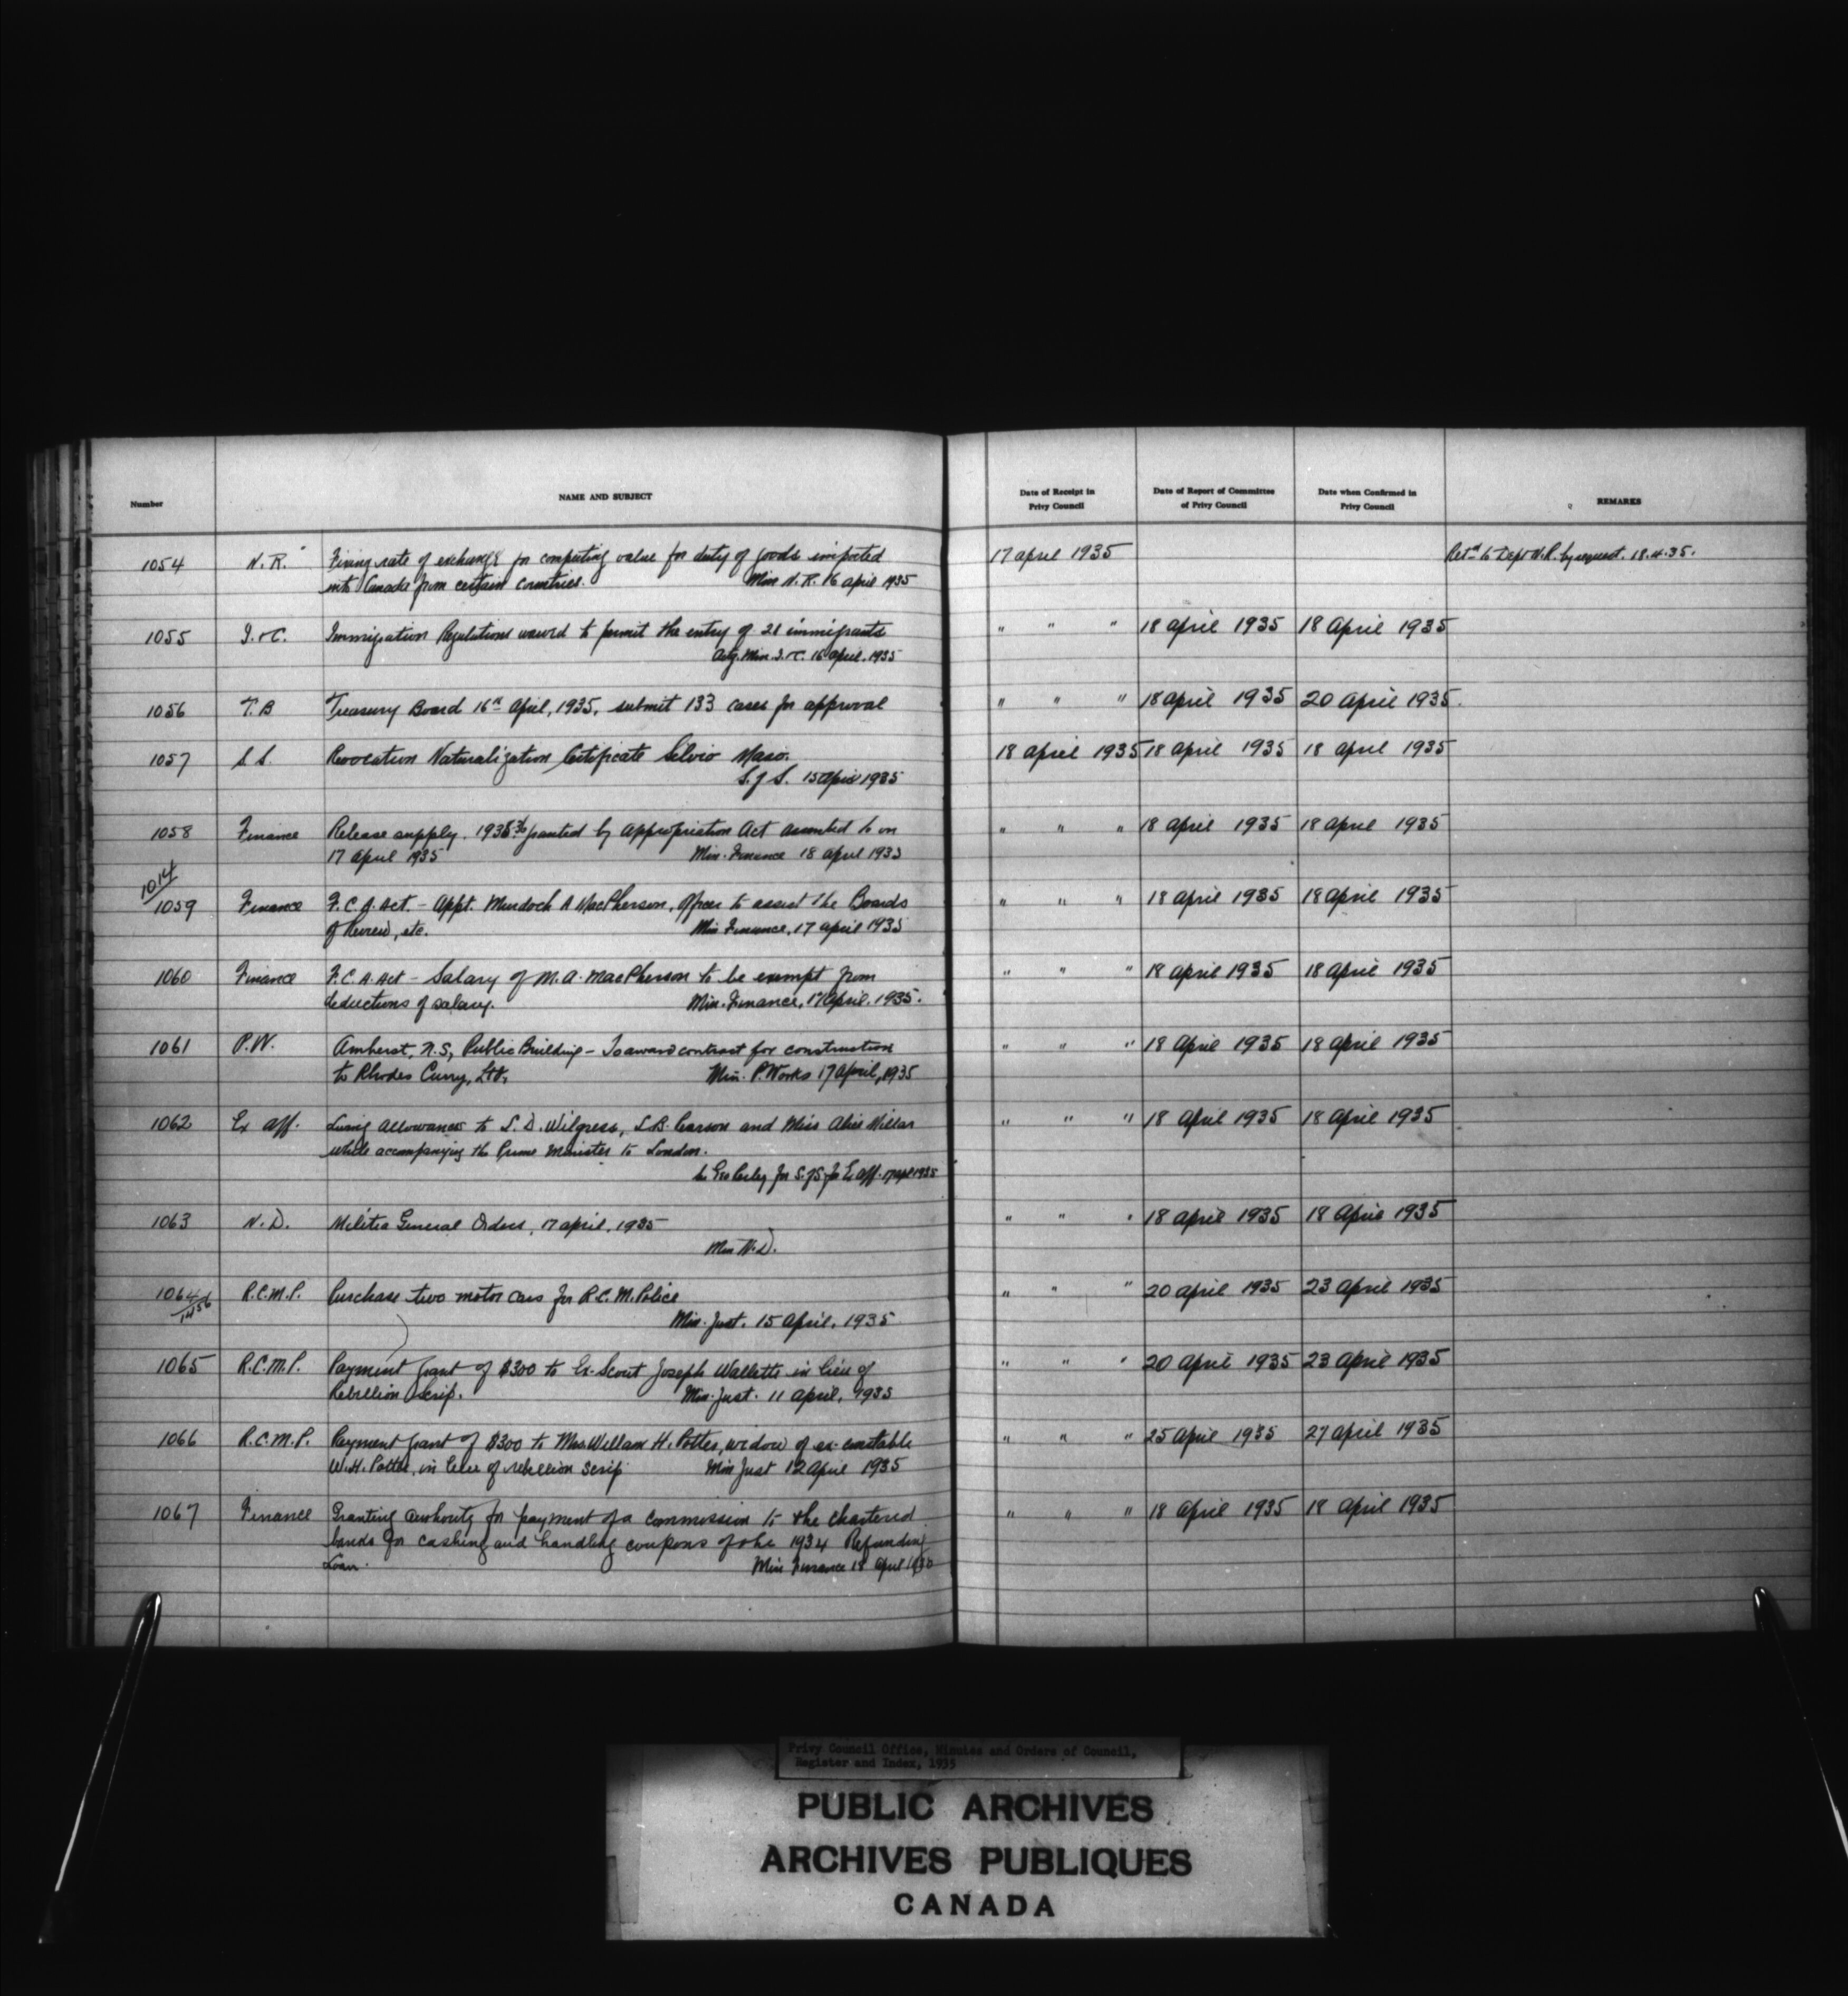 Number
NAME AND SUBJECT
Date of Receipt in
Privy Council
Date of Report of Committee
of Privy Council
Date when Confirmed in
Privy Council
REMARKS
1054 N.R. Fixing rate of exchange for computing value for duty of goods imported
into Canada from certain countries. Min N.R. 16 April 1935
17 April 1935
Retd to Dept N.R. by request. 18.4.35.
1055 I.&C. Immigration Regulations waived to permit the entry of 21 immigrants
Actg. Min. I.&C. 16 April. 1935
" " " 18 April 1935 18 April 1935
1056 T.B Treasury Board 16th April, 1935, submit 133 cases for approval
" " " 18 April 1935 20 April 1935.
1057 S.S. Revocation Naturalization Certificate Silvio Maso.
S. of S. 15 April 1935
18 April 1935 18 April 1935 18 April 1935
1058 Finance Release supply granted by Appropriation Act assented to on
17 April 1935 Min. Finance 18 April 1935
" " " 18 April 1935 18 April 1935
1014
1059 Finance F.C.A. Act. - Appt. Murdoch A MacPherson, Officer to assist the Boards
of Review, etc. Min Finance, 17 April 1935
" " " 18 April 1935 18 April 1935
1060 Finance F.C.A. Act - Salary of M.A. MacPherson to be exempt from
deductions of salary. Min. Finance, 17 April. 1935.
" " " 18 April 1935 18 April 1935
1061 P.W. Amherst, N.S, Public Building - To award contract for construction
to Rhodes Curry, Ltd. Min. P. Works 17 April, 1935
" " " 18 April 1935 18 April 1935
1062 Ex Aff. Living allowances to L.D. Wilgress, S.B. Carson and Miss Alice Millar
while accompanying the Prime Minister to London.
Geo Perley for S. of S. for Ex Aff. 17 Apl 1935
" " " 18 April 1935 18 April 1935
1063 N.D. Militia General Orders, 17 April, 1935
Min N.D.
" " " 18 April 1935 18 April 1935
1064 R.C.M.P. Purchase two motor cars for R.C.M. Police
1456
Min. Just. 15 April. 1935
" " " 20 April 1935 23 April 1935
1065 R.C.M.P. Payment grant of $300 to Ex-Scout Joseph Wallette in lieu of
Rebellion Scrip. Min. Just. 11 April, 1935
" " " 20 April 1935 23 April 1935
1066 R.C.M.P. Payment grant of $300 to Mrs. William H. Potter, widow of ex-constable
W.H. Potter, in lieu of rebellion scrip Min Just 12 April 1935
" " " 25 April 1935 27 April 1935
1067 Finance Granting authority for payment of a commission to the chartered
banks for cashing and handling coupons of the 1934 Refunding
Loan. Min Finance 18 April
" " " 18 April 1935 18 April 1935
Privy Council Office, Minutes and Orders of Council,
Register and Index, 1935
PUBLIC ARCHIVES
ARCHIVES PUBLIQUES
CANADA